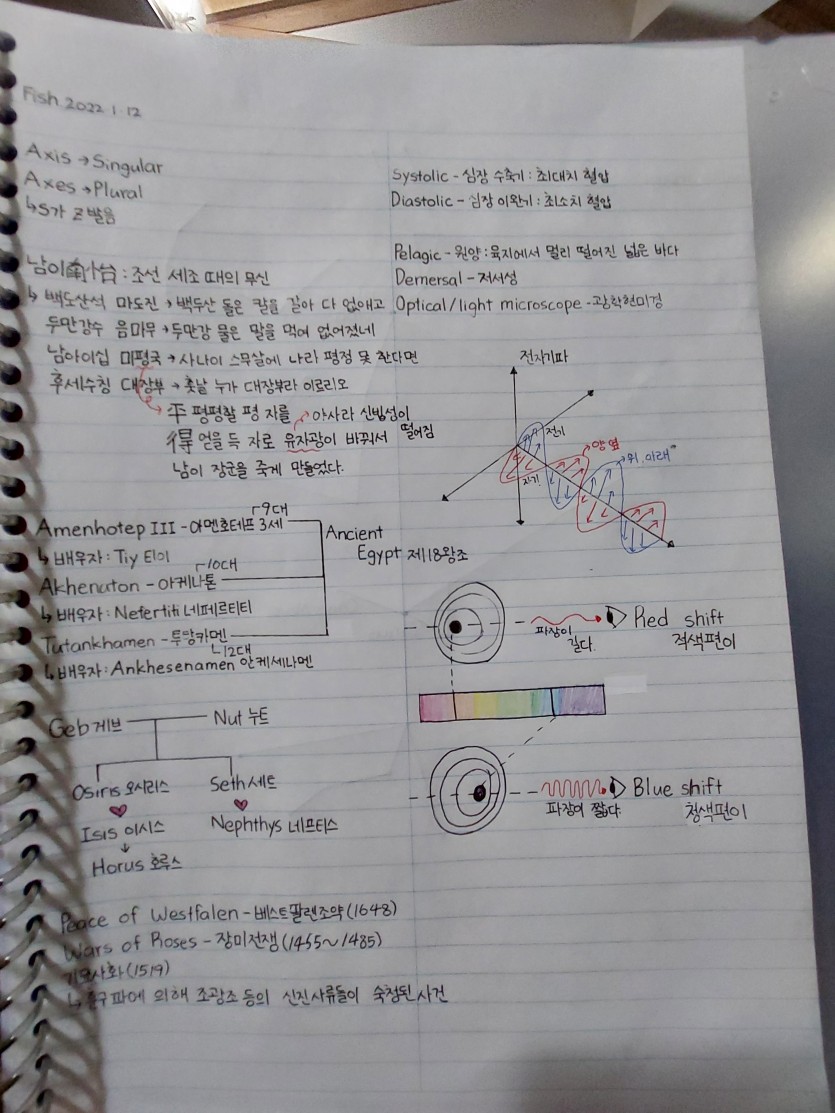 Fish 2022.1.12
Axis → Singular
Axes → Plural
↳ S가 z발음
남이南怡 : 조선 세조 때의 무신
↳ 백도산석 마도진 → 백두산 돌은 칼을 갈아 다 없애고
두만강수 음마무 → 두만강 물은 말을 먹여 없어졌네
남아이십 미평국 → 사나이 스무살에 나라 평정 못 한다면
후세수칭 대장부 → 훗날 누가 대장부라 이르리오
平 평평할 평 자를 → 야사라 신빙성이 떨어짐
得 얻을 득 자로 유자광이 바꿔서
남이 장군을 죽게 만들었다.
Amenhotep III - 아멘호테프 3세
9대
↳ 배우자 : Tiy 티이
10대
Akhenaton - 아케나톤
↳ 배우자 : Nefertiti 네페르티티
Tutankhamen - 투탕카멘
12대
↳ 배우자 : Ankhesenamen 안케세나멘
Ancient
Egypt 제18왕조
Geb 게브
Nut 누트
Osiris 오시리스
Seth 세트
Isis 이시스
Nephthys 네프티스
Horus 호루스
Peace of Westfalen - 베스트팔렌조약(1648)
Wars of Roses - 장미전쟁(1455~1485)
기묘사화(1519)
↳ 훈구파에 의해 조광조 등의 신진사류들이 숙청된 사건
Systolic - 심장 수축기 : 최대치 혈압
Diastolic - 심장 이완기 : 최소치 혈압
Pelagic - 원양 : 육지에서 멀리 떨어진 넓은 바다
Demersal - 저서성
Optical/light microscope - 광학현미경
전자기파
전기
자기
양 옆
위, 아래
파장이
길다.
Red shift
적색편이
파장이 짧다.
Blue shift
청색편이